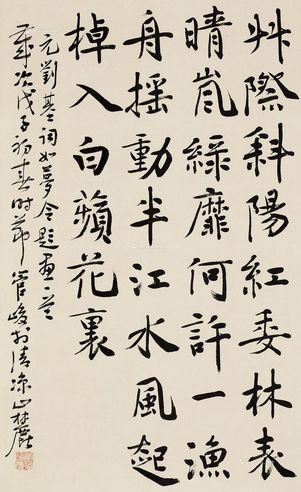 艸際斜陽紅委林表
晴嵐綠靡何許一漁
舟搖動半江水風起
棹入白蘋花裏
元劉基詞如夢令題畫一首
歲次戊子初春時節管峻於清涼山林麓